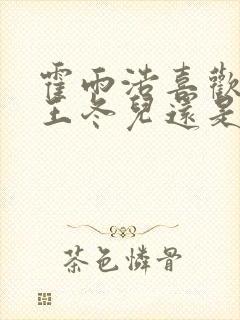 霍雨浩喜歡
王冬兒還是
茶色憐骨